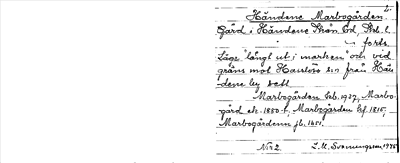 2.
Händene Marbogården
Gård i Händene Skån. Sd, Skb. l.
forts.
Läge "långt ut i marken" och vid
gräns mot Hasslösa s:n från Hän-
dene by sett
Marbogården Leb. 1927, Marbo-
gård ek. 1880-t, Marbogården Lf. 1815,
Marbogårdenn jb. 1651.
Nr 2. L. M. Svennungsson 1935